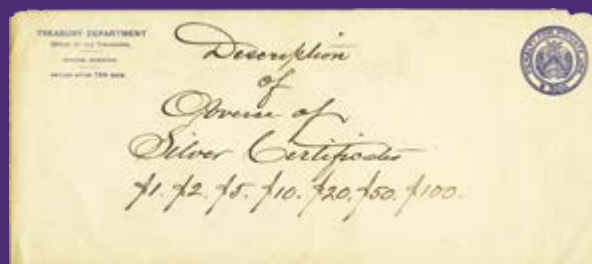 TREASURY DEPARTMENT
OFFICE OF THE TREASURER
OFFICIAL BUSINESS
RETURN AFTER TEN DAYS
Description
of
Obverse of
Silver Certificates
$1. $2. $5. $10. $20. $50. $100.